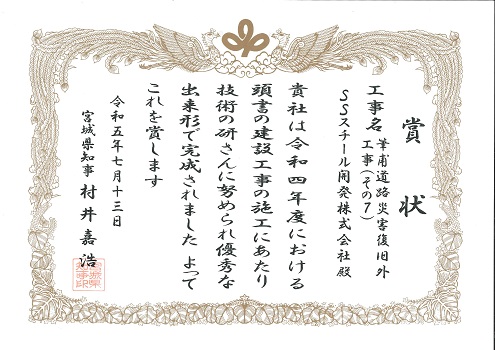 賞状
工事名 筆甫道路災害復旧外
工事(その7)
SSスチール開発株式会社 殿
貴社は令和四年度における
頭書の建設工事の施工にあたり
技術の研さんに努められ優秀な
出来形で完成されました よって
これを賞します
令和五年七月十三日
宮城県知事 村井嘉浩